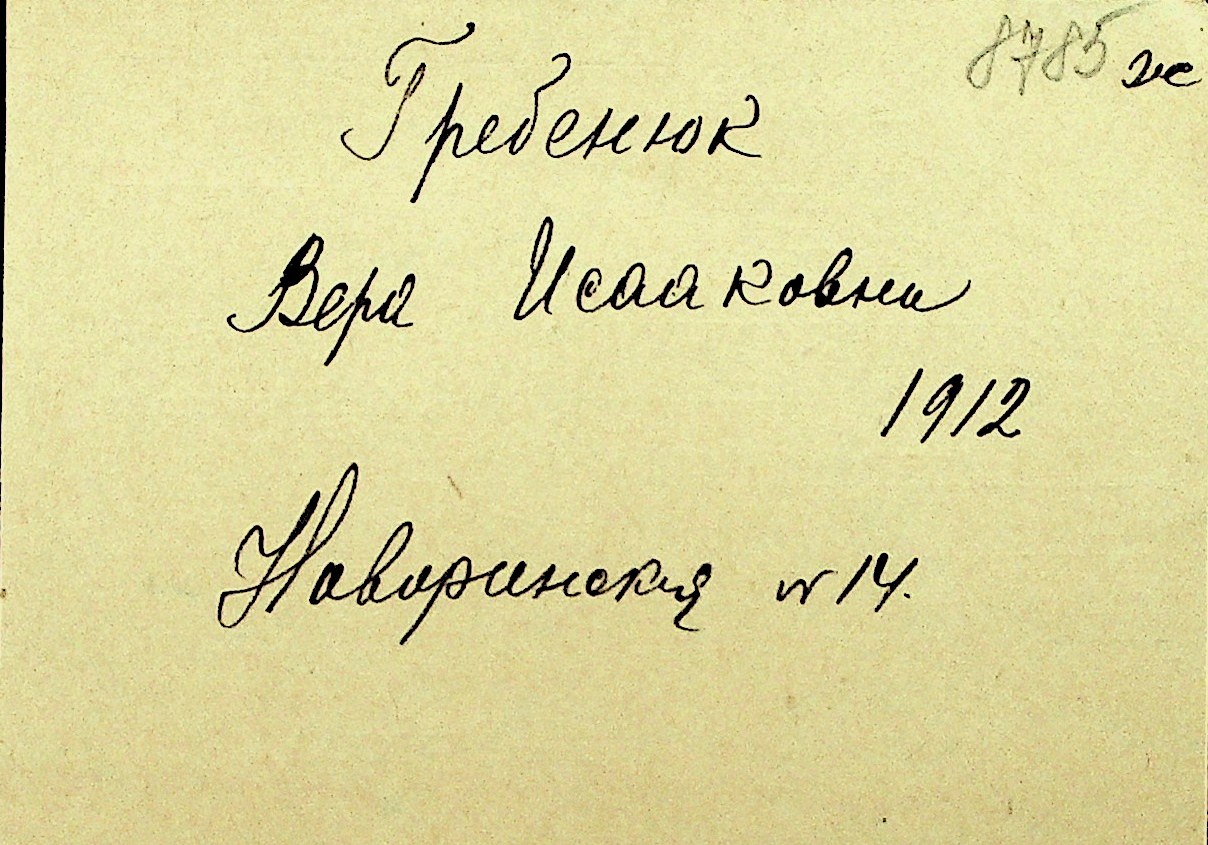 8785 ж
Гребенюк
Вера Исааковна
1912
Новоринская № 14.